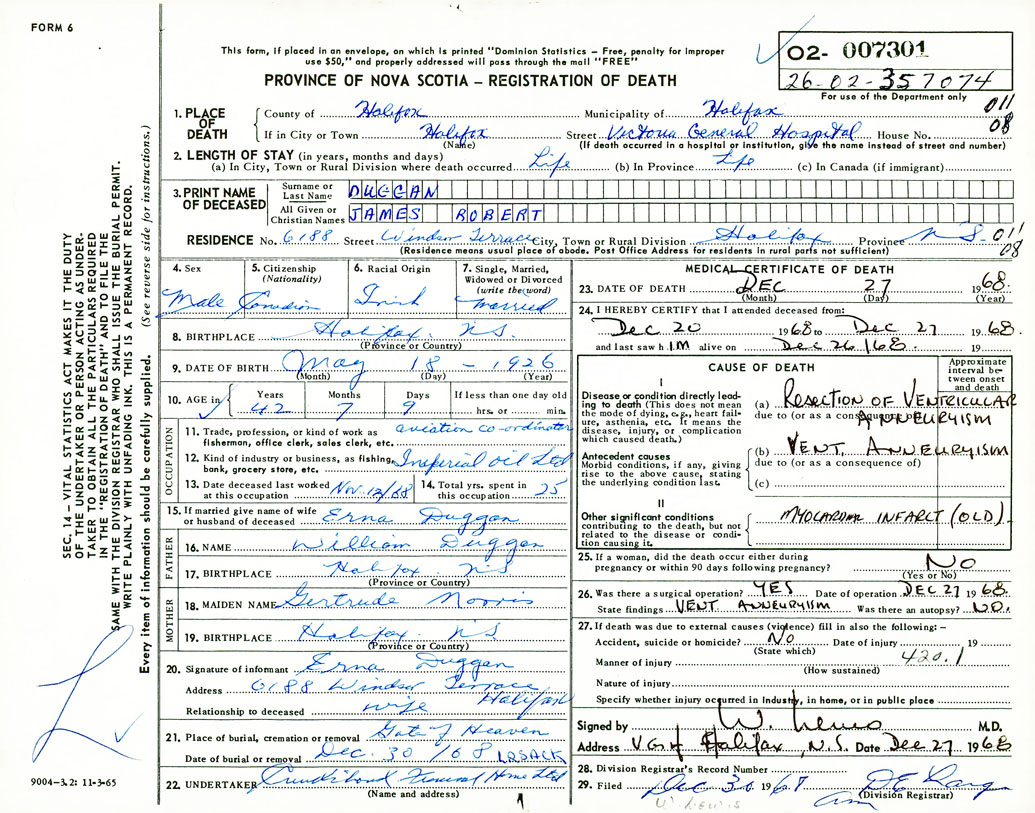 FORM 6
This form, if placed in an envelope, on which is printed "Dominion Statistics – Free, penalty for improper
use $50," and properly addressed will pass through the mail "FREE"
PROVINCE OF NOVA SCOTIA – REGISTRATION OF DEATH
02- 007301
26-02-357074
For use of the Department only
011
08
1. PLACE OF DEATH
County of Halifax Municipality of Halifax
If in City or Town Halifax Street Victoria General Hospital House No.
(Name) (If death occurred in a hospital or institution, give the name instead of street and number)
2. LENGTH OF STAY (in years, months and days)
(a) In City, Town or Rural Division where death occurred Life (b) In Province Life (c) In Canada (if immigrant)
3. PRINT NAME OF DECEASED
Surname or Last Name DUGGAN
All Given or Christian Names JAMES ROBERT
RESIDENCE No. 6188 Street Windsor Terrace City, Town or Rural Division Halifax Province N.S. 011
08
(Residence means usual place of abode. Post Office Address for residents in rural parts not sufficient)
4. Sex Male
5. Citizenship (Nationality) Canadian
6. Racial Origin Irish
7. Single, Married, Widowed or Divorced (write the word) Married
8. BIRTHPLACE Halifax, N.S.
(Province or Country)
9. DATE OF BIRTH May 18 – 1926
(Month) (Day) (Year)
10. AGE in Years 42 Months 7 Days 9 If less than one day old hrs. or min.
OCCUPATION
11. Trade, profession or kind of work as fisherman, office clerk, sales clerk, etc. aviation co-ordinator
12. Kind of industry or business, as fishing, bank, grocery store, etc. Imperial Oil Ltd
13. Date deceased last worked at this occupation Nov. 12/68
14. Total yrs. spent in this occupation 25
15. If married give name of wife or husband of deceased Erna Duggan
FATHER
16. NAME William Duggan
17. BIRTHPLACE Halifax N.S
(Province or Country)
MOTHER
18. MAIDEN NAME Gertrude Morris
19. BIRTHPLACE Halifax. N.S
(Province or Country)
20. Signature of informant Erna Duggan
Address 6188 Windsor Terrace Halifax
Relationship to deceased wife
21. Place of burial, cremation or removal Gate of Heaven
Date of burial or removal Dec. 30 /68 LR SACK
22. UNDERTAKER Funeral Home Ltd
(Name and address)
MEDICAL CERTIFICATE OF DEATH
23. DATE OF DEATH DEC 27 1968.
(Month) (Day) (Year)
24. I HEREBY CERTIFY that I attended deceased from:
Dec 20 1968 to Dec 27 1968.
and last saw h IM alive on Dec 26/68. 19
CAUSE OF DEATH
Approximate interval between onset and death
I
Disease or condition directly leading to death (This does not mean the mode of dying, e.g., heart failure, asthenia, etc. It means the disease, injury, or complication which caused death.)
(a) RESECTION OF VENTRICULAR
due to (or as a consequence of) ANNEURYISM
Antecedent causes
Morbid conditions, if any, giving rise to the above cause, stating the underlying condition last.
(b) VENT. ANNEURYISM
due to (or as a consequence of)
(c)
II
Other significant conditions
contributing to the death, but not related to the disease or condition causing it.
MYOCARDIAL INFARCT (OLD).
25. If a woman, did the death occur either during pregnancy or within 90 days following pregnancy? NO
(Yes or No)
26. Was there a surgical operation? YES Date of operation DEC 27 1968.
State findings VENT. ANNEURYISM Was there an autopsy? NO.
27. If death was due to external causes (violence) fill in also the following:–
Accident, suicide or homicide? No Date of injury 19
(State which)
420.1
Manner of injury
(How sustained)
Nature of injury
Specify whether injury occurred in industry, in home, or in public place
Signed by M.D.
Address V.G.H Halifax, N.S. Date Dec 27 1968
28. Division Registrar's Record Number
29. Filed Dec 30 1967
(Division Registrar)
SEC. 14 – VITAL STATISTICS ACT MAKES IT THE DUTY
OF THE UNDERTAKER OR PERSON ACTING AS UNDER-
TAKER TO OBTAIN ALL THE PARTICULARS REQUIRED
IN THE "REGISTRATION OF DEATH" AND TO FILE THE
SAME WITH THE DIVISION REGISTRAR WHO SHALL ISSUE THE BURIAL PERMIT.
WRITE PLAINLY WITH UNFADING INK. THIS IS A PERMANENT RECORD.
Every item of information should be carefully supplied. (See reverse side for instructions.)
9004–3.2: 11-3-65